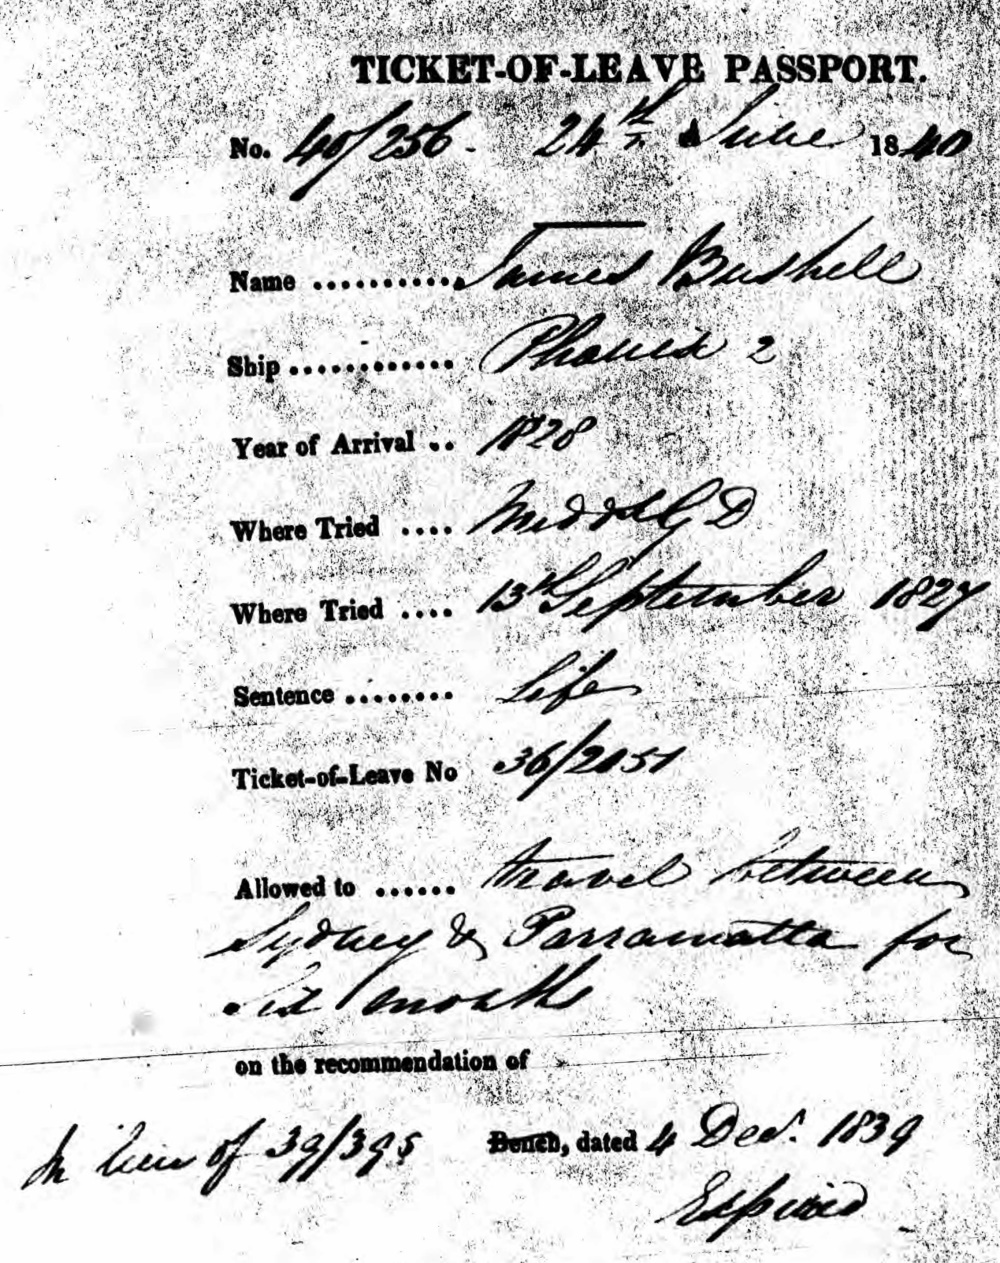 TICKET-OF-LEAVE PASSPORT.
No. 40/256. 24th June 1840
Name ........... James Bushell
Ship ............ Phoenix 2
Year of Arrival .. 1828
Where Tried .... Middx G D
Where Tried .... 13th September 1827
Sentence ........ Life
Ticket-of-Leave No 36/2051
Allowed to ...... travel between
Sydney & Parramatta for
six months
on the recommendation of
In lieu of 39/395 Bench, dated 4 Decr. 1839
Expired